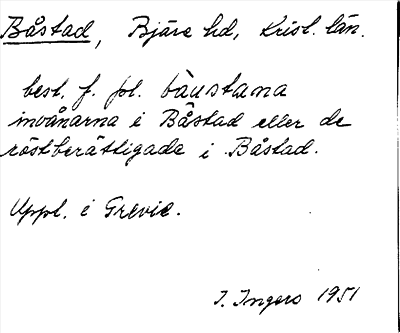 Båstad, Bjäre hd, Krist. län.
best. f. pl. bàustana
invånarna i Båstad eller de
röstberättigade i Båstad.
Uppt. i Grevie.
I. Ingers 1951